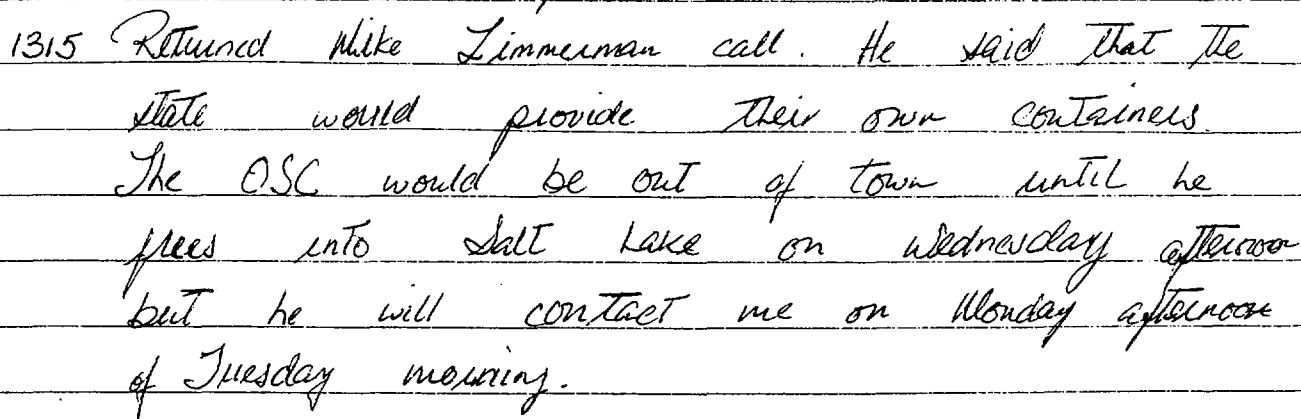 1315 Returned Mike Zimmerman call. He said that the
state would provide their own containers.
The OSC would be out of town until he
flies into Salt Lake on Wednesday afternoon
but he will contact me on Monday afternoon
of Tuesday morning.